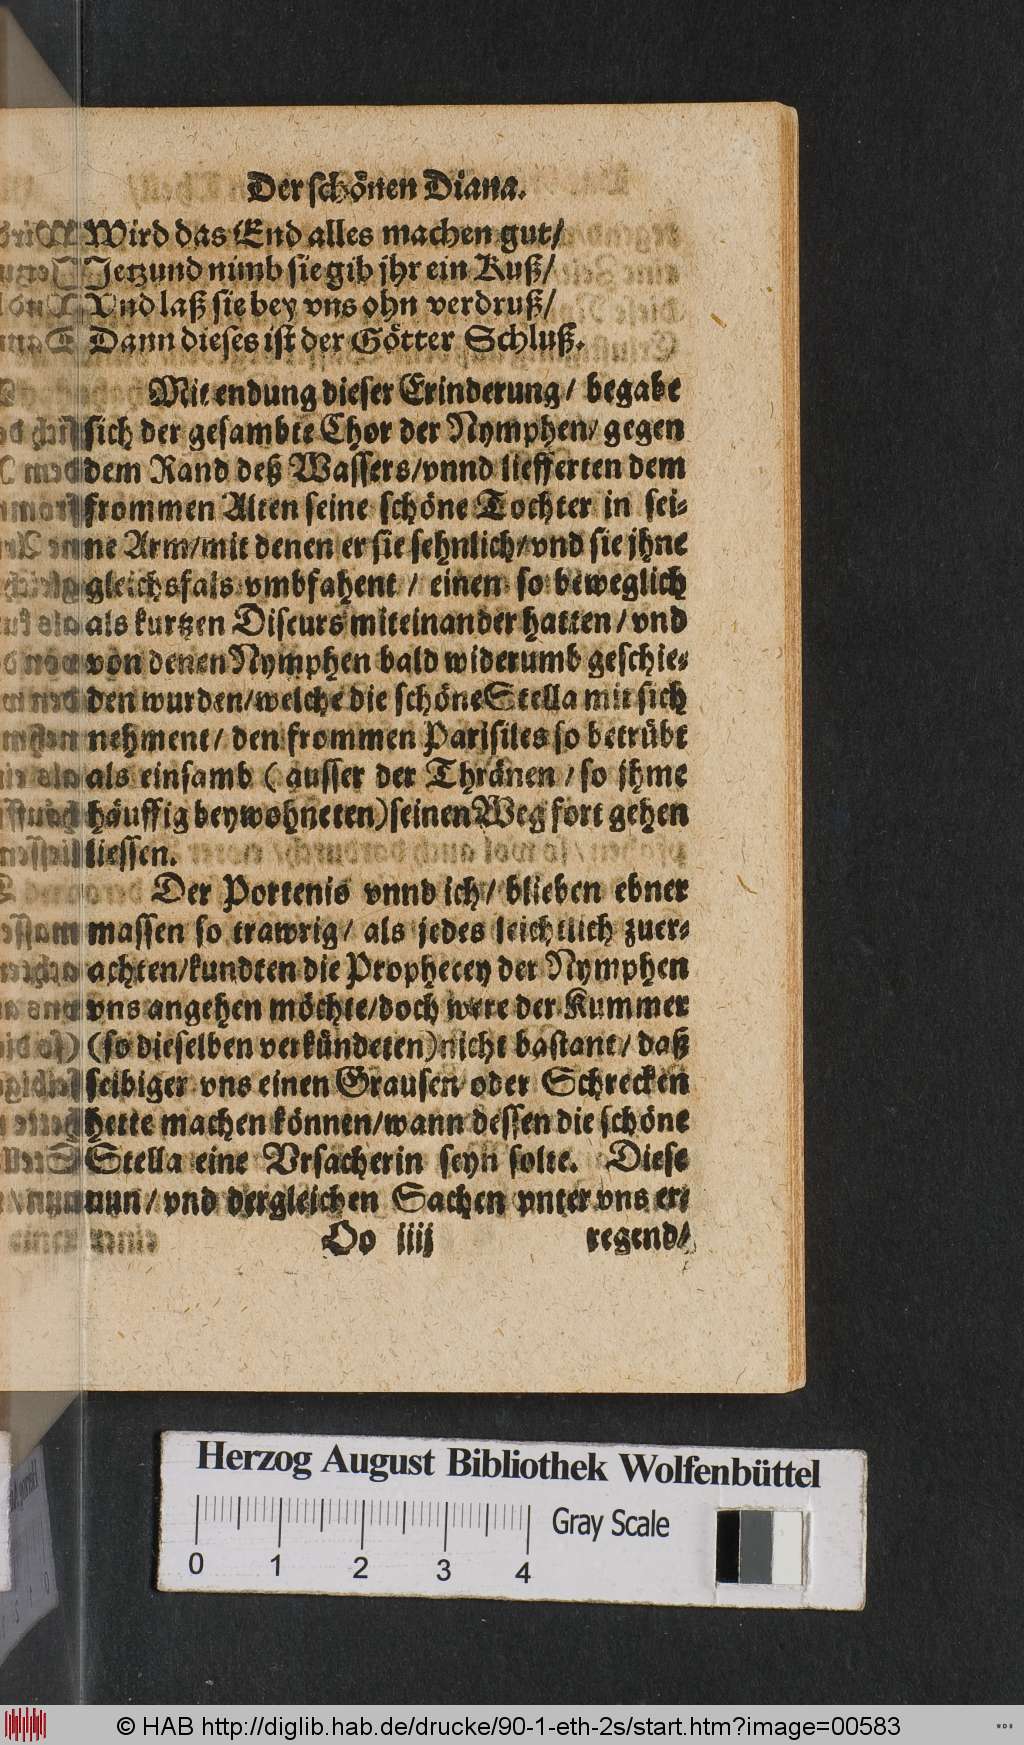 Der schönen Diana.
Wird das End alles machen gut/
Jetzund nimb sie gib jhr ein Kuß/
Vnd laß sie bey vns ohn verdruß/
Dann dieses ist der Götter Schluß.
Mit endung dieser Erinderung/ begabe
sich der gesambte Chor der Nymphen/ gegen
dem Rand deß Wassers/vnnd liefferten dem
frommen Alten seine schöne Tochter in sei-
ne Arm/mit denen er sie sehnlich/vnd sie jhne
gleichsfals vmbfahent/ einen so beweglich
als kurtzen Discurs miteinander hatten/vnd
von denen Nymphen bald widerumb geschie-
den wurden/welche die schöne Stella mit sich
nehment/ den frommen Parisiles so betrübt
als einsamb (ausser der Thränen/so jhme
häuffig beywohneten) seinen Weg fort gehen
liessen.
Der Portenio vnnd ich/ blieben ebner
massen so trawrig/ als jedes leichtlich zuer-
achten/kundten die Prophecey der Nymphen
vns angehen möchte/doch were der Kummer
(so dieselben verkündeten) nicht bastant/ daß
selbiger vns einen Grausen oder Schrecken
hette machen können/wann dessen die schöne
Stella eine Vrsacherin seyn solte. Diese
nun/vnd dergleichen Sachen vnter vns er-
Oo iiij regend/
Herzog August Bibliothek Wolfenbüttel
Gray Scale
0 1 2 3 4
© HAB http://diglib.hab.de/drucke/90-1-eth-2s/start.htm?image=00583